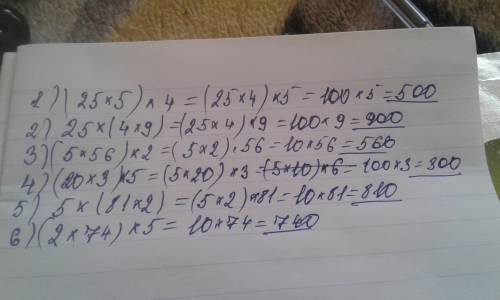 1) (25×5)×4=(25×4)×5=100×5=500
2) 25×(4×9)=(25×4)×9=100×9=900
3) (5×56)×2=(5×2)·56=10×56=560
4) (20×3)×5=(5×20)×3=(5×10)×6=100×3=300
5) 5×(81×2)=(5×2)×81=10×81=810
6) (2×74)×5=10×74=740